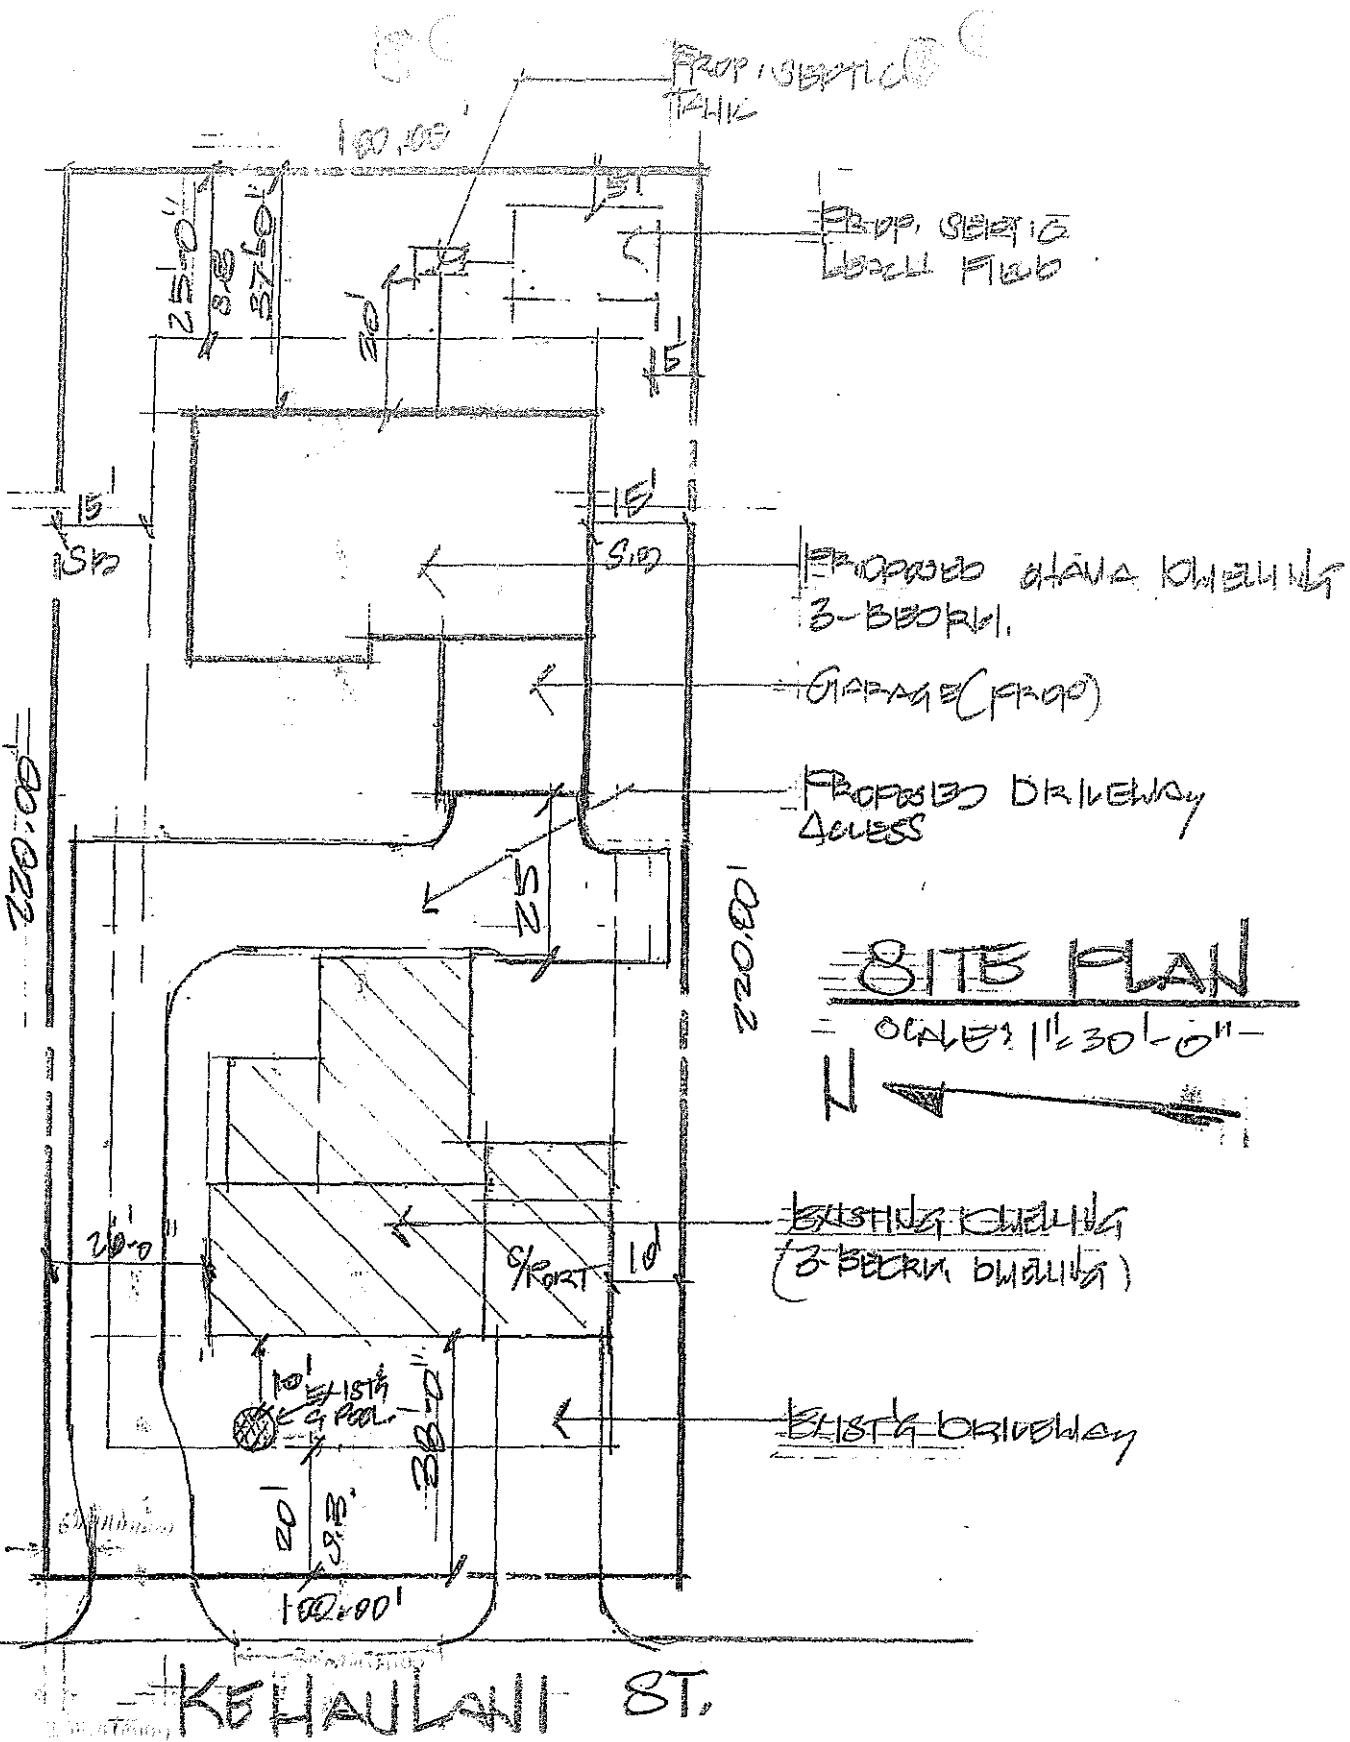 PROP. SEPTIC
TANK
100.00'
5'
25'-0"
S.B
37'-0"
PROP. SEPTIC
LEACH FIELD
30'
15'
15'
S.B
15'
S.B
PROPOSED OHANA DWELLING
3-BEDRM.
GARAGE (PROP)
220.00'
PROPOSED DRIVEWAY
ACCESS
25'
220.00'
SITE PLAN
SCALE: 1"=30'-0"
N
EXISTING DWELLING
(3-BEDRM. DWELLING)
26'-0"
C/PORT
10'
10'
EXIST'G
C'POOL.
38'-0"
EXIST'G DRIVEWAY
20'
S.B.
100.00'
KEHAULANI ST.